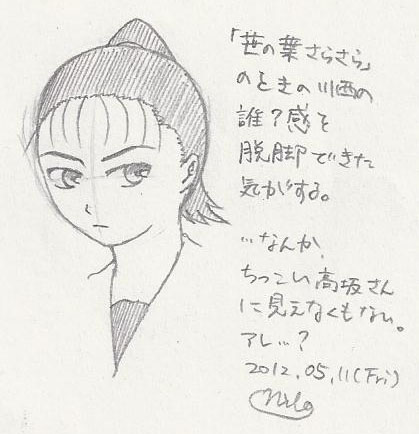 「笹の葉さらさら」
のときの川西の
誰?感を
脱却できた
気がする。
…なんか、
ちっこい高坂さん
に見えなくもない。
アレ…?
2012.05.11(Fri)